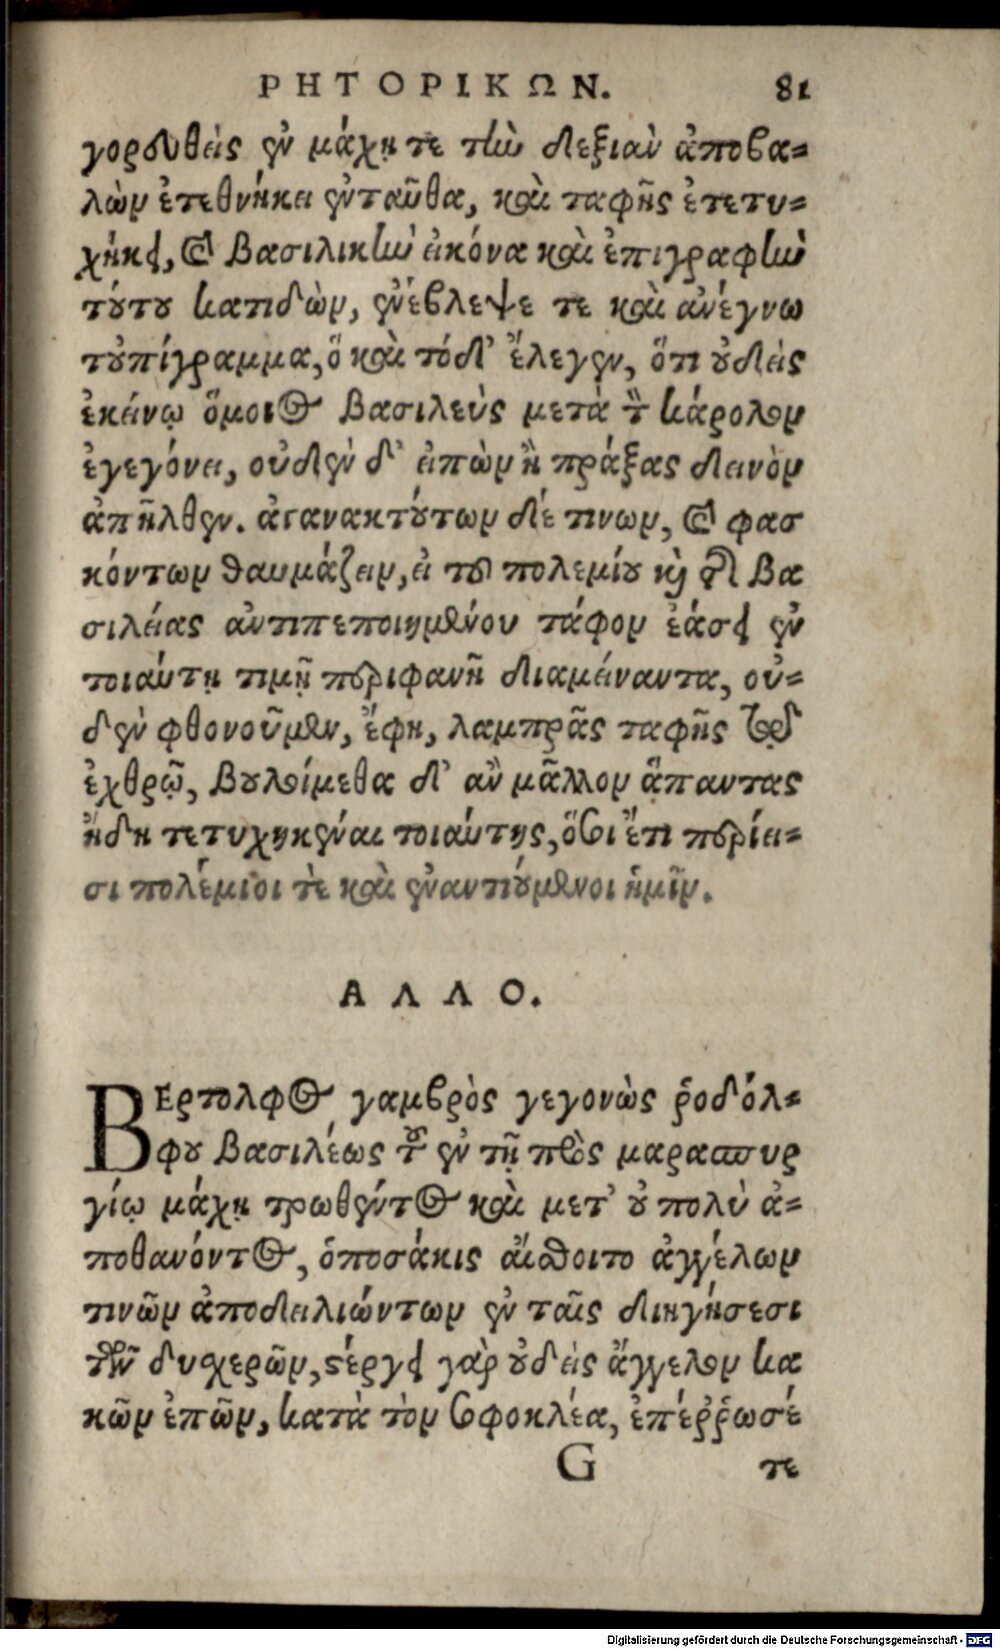 ΡΗΤΟΡΙΚΩΝ. 81
γορευθεὶς ἐν μάχῃ τε τὴν δεξιὰν ἀποβα-
λὼν ἐτεθνήκει ἐνταῦθα, καὶ ταφῆς ἐτετυ-
χήκει, καὶ βασιλικὴν εἰκόνα καὶ ἐπιγραφὴν
τούτου κατιδὼν, ἐνέβλεψε τε καὶ ἀνέγνω
τοὐπίγραμμα, ὅ καὶ τόδ' ἔλεγεν, ὅτι οὐδεὶς
ἐκείνῳ ὅμοιος βασιλεὺς μετὰ τὸν κάρολον
ἐγεγόνει, οὐδὲν δ' εἰπὼν ἢ πράξας δεινὸν
ἀπῆλθεν. ἀγανακτούτων δέ τινων, καὶ φασ
κόντων θαυμάζειν, εἰ τοῦ πολεμίου καὶ τῆς βα
σιλείας ἀντιπεποιημένου τάφον ἐάσει ἐν
τοιαύτῃ τιμῇ περιφανῆ διαμείναντα, οὐ-
δὲν φθονοῦμεν, ἔφη, λαμπρᾶς ταφῆς τῷ
ἐχθρῷ, βουλοίμεθα δ' ἂν μᾶλλον ἅπαντας
ἤδη τετυχηκέναι τοιαύτης, ὅσοι ἔτι περίει-
σι πολέμιοι τὲ καὶ ἐναντιούμενοι ἡμῖν.
ΑΛΛΟ.
ΒΕρτολφος γαμβρὸς γεγονὼς ῥοδόλ-
φου βασιλέως τοῦ ἐν τῇ πρὸς μαραπυρ
γίῳ μάχῃ τρωθέντος καὶ μετ' οὐ πολὺ ἀ-
ποθανόντος, ὁποσάκις αἴσθοιτο ἀγγέλων
τινῶν ἀποδειλιώντων ἐν ταῖς διηγήσεσι
τῶν δυσχερῶν, στέργει γὰρ οὐδεὶς ἄγγελον κα
κῶν ἐπῶν, κατὰ τὸν σοφοκλέα, ἐπέῤῥωσέ
G τε
Digitalisierung gefördert durch die Deutsche Forschungsgemeinschaft - DFG